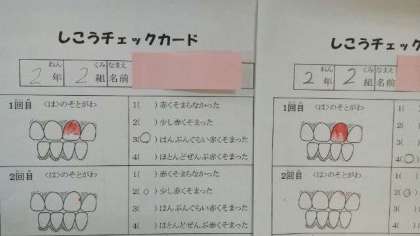 しこうチェックカード
2年 2組 名前
1回目 〈は〉のそとがわ
1( )赤くそまらなかった
2( )少し赤くそまった
3(○)はんぶんぐらい赤くそまった
4( )ほとんどぜんぶ赤くそまった
2回目 〈は〉のそとがわ
1( )赤くそまらなかった
2(○)少し赤くそまった
3( )はんぶんぐらい赤くそまった
4( )ほとんどぜんぶ赤くそまった
しこうチェックカ
2年 2組 名前
1回目 〈は〉のそとがわ
1(
2(
3(○
4(
2回目 〈は〉のそとがわ
1(
2(○
3(
4(